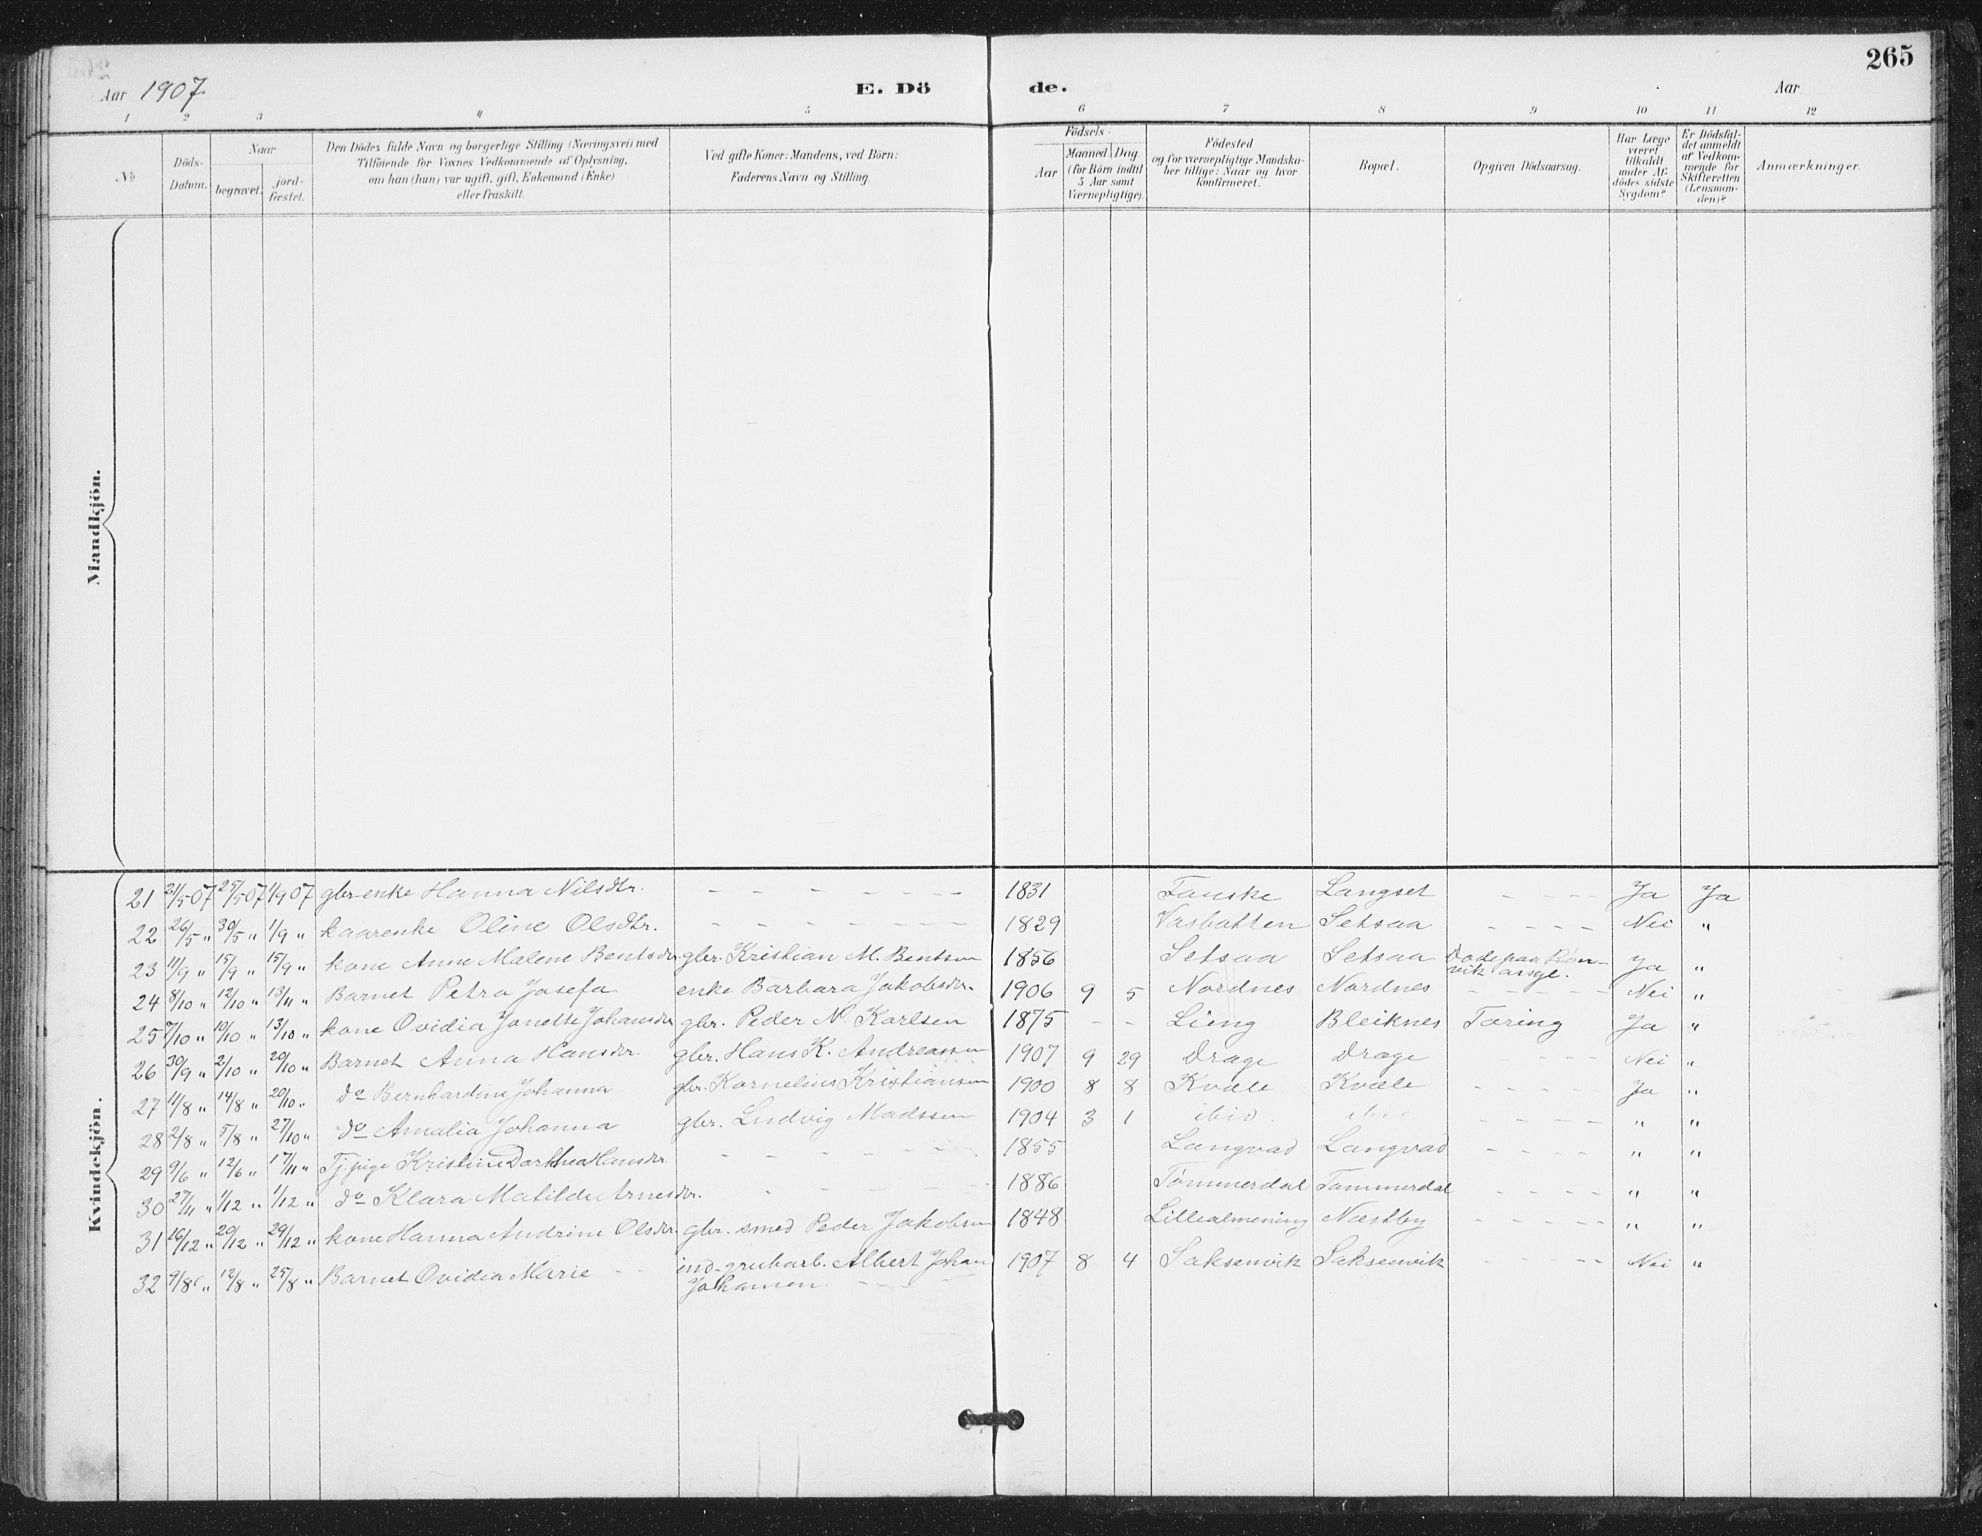 265
Aar 1907 E. Dö de. Aar
1 2 3 4 5 6 7 8 9 10 11 12
No
Döds-Datum.
Naar
begravet.
jord-fæstet.
Den Dödes fulde Navn og borgerlige Stilling (Næringsvei) med
Tilföiende for Voxnes Vedkommende af Oplysning,
om han (hun) var ugift, gift, Enkemand (Enke)
eller fraskilt.
Ved gifte Koner: Mandens, ved Börn:
Faderens Navn og Stilling.
Födsels-
Aar
Maaned. Dag.
(for Börn indtil
5 Aar samt
Værnepligtige).
Födested
og for værnepligtige Mandska-
ber tillige: Naar og hvor
konfirmeret.
Bopæl.
Opgiven Dödsaarsag.
Har Læge
været
tilkaldt
under Af-
dödes sidste
Sygdom?
Er Dödsfal-
det anmeldt
af Vedkom-
mende for
Skifteretten
(Lensman-
den)?
Anmærkninger.
Mandkjön.
Kvindekjön.
21 21/5 07 25/5 07 1/9 07 gbr.enke Hanna Nilsdtr. - - - - - - 1831 Fauske Langset - - - - Ja Ja
22 26/5 " 30/5 " 1/9 " kaarenke Oline Olsdtr. - - - - - - 1829 Vasbotten Setsaa - - - - Nei "
23 11/9 " 15/9 " 15/9 " kone Anne Malene Bentsdtr gbr. Kristian M. Bentsen 1856 Setsaa Setsaa Døde paa Røn-
vik asyl. Ja "
24 8/10 " 12/10 " 13/11 " Barnet Petra Josefa enke Barbara Jakobsdtr. 1906 9 5 Nordnes Nordnes - - - - Nei "
25 7/10 " 10/10 " 13/10 " kone Ovidia Jonette Johansdtr gbr. Peder N Karlsen 1875 - - Lieng Bleiknes Tæring Ja "
26 30/9 " 2/10 " 20/10 " Barnet Anna Hansdtr. gbr. Hans K. Andreassen 1907 9 29 Drage Drage - - - - Nei "
27 11/8 " 14/8 " 20/10 " do Bernhardine Johanna gbr. Kornelius Kristiansen 1900 8 8 Kvæle Kvæle - - - - Ja "
28 2/8 " 5/8 " 27/10 " do Amalia Johanna gbr. Ludvig Madssen 1904 3 1 ibid. ibid. - - - - " "
29 9/6 " 12/6 " 17/11 " Tj. pige Kristine Dorthea Hansdtr. - - - - - - 1855 Langvad Langvad - - - - " "
30 27/11 " 1/12 " 1/12 " do Klara Matilde Arnesdtr. - - - - - 1886 Tømmerdal Tømmerdal - - - - " "
31 16/12 " 29/12 " 29/12 " kone Hanna Andrine Olsdtr gbr. smed Peder Jakobsen 1848 Lillealmening Næstby - - - - " "
32 9/8 " 12/8 " 25/8 " Barnet Ovidia Marie - - ind. grubarb. Albert Johan 1907 8 4 Saksenvik Saksenvik - - - - Nei "
Johansen - - -